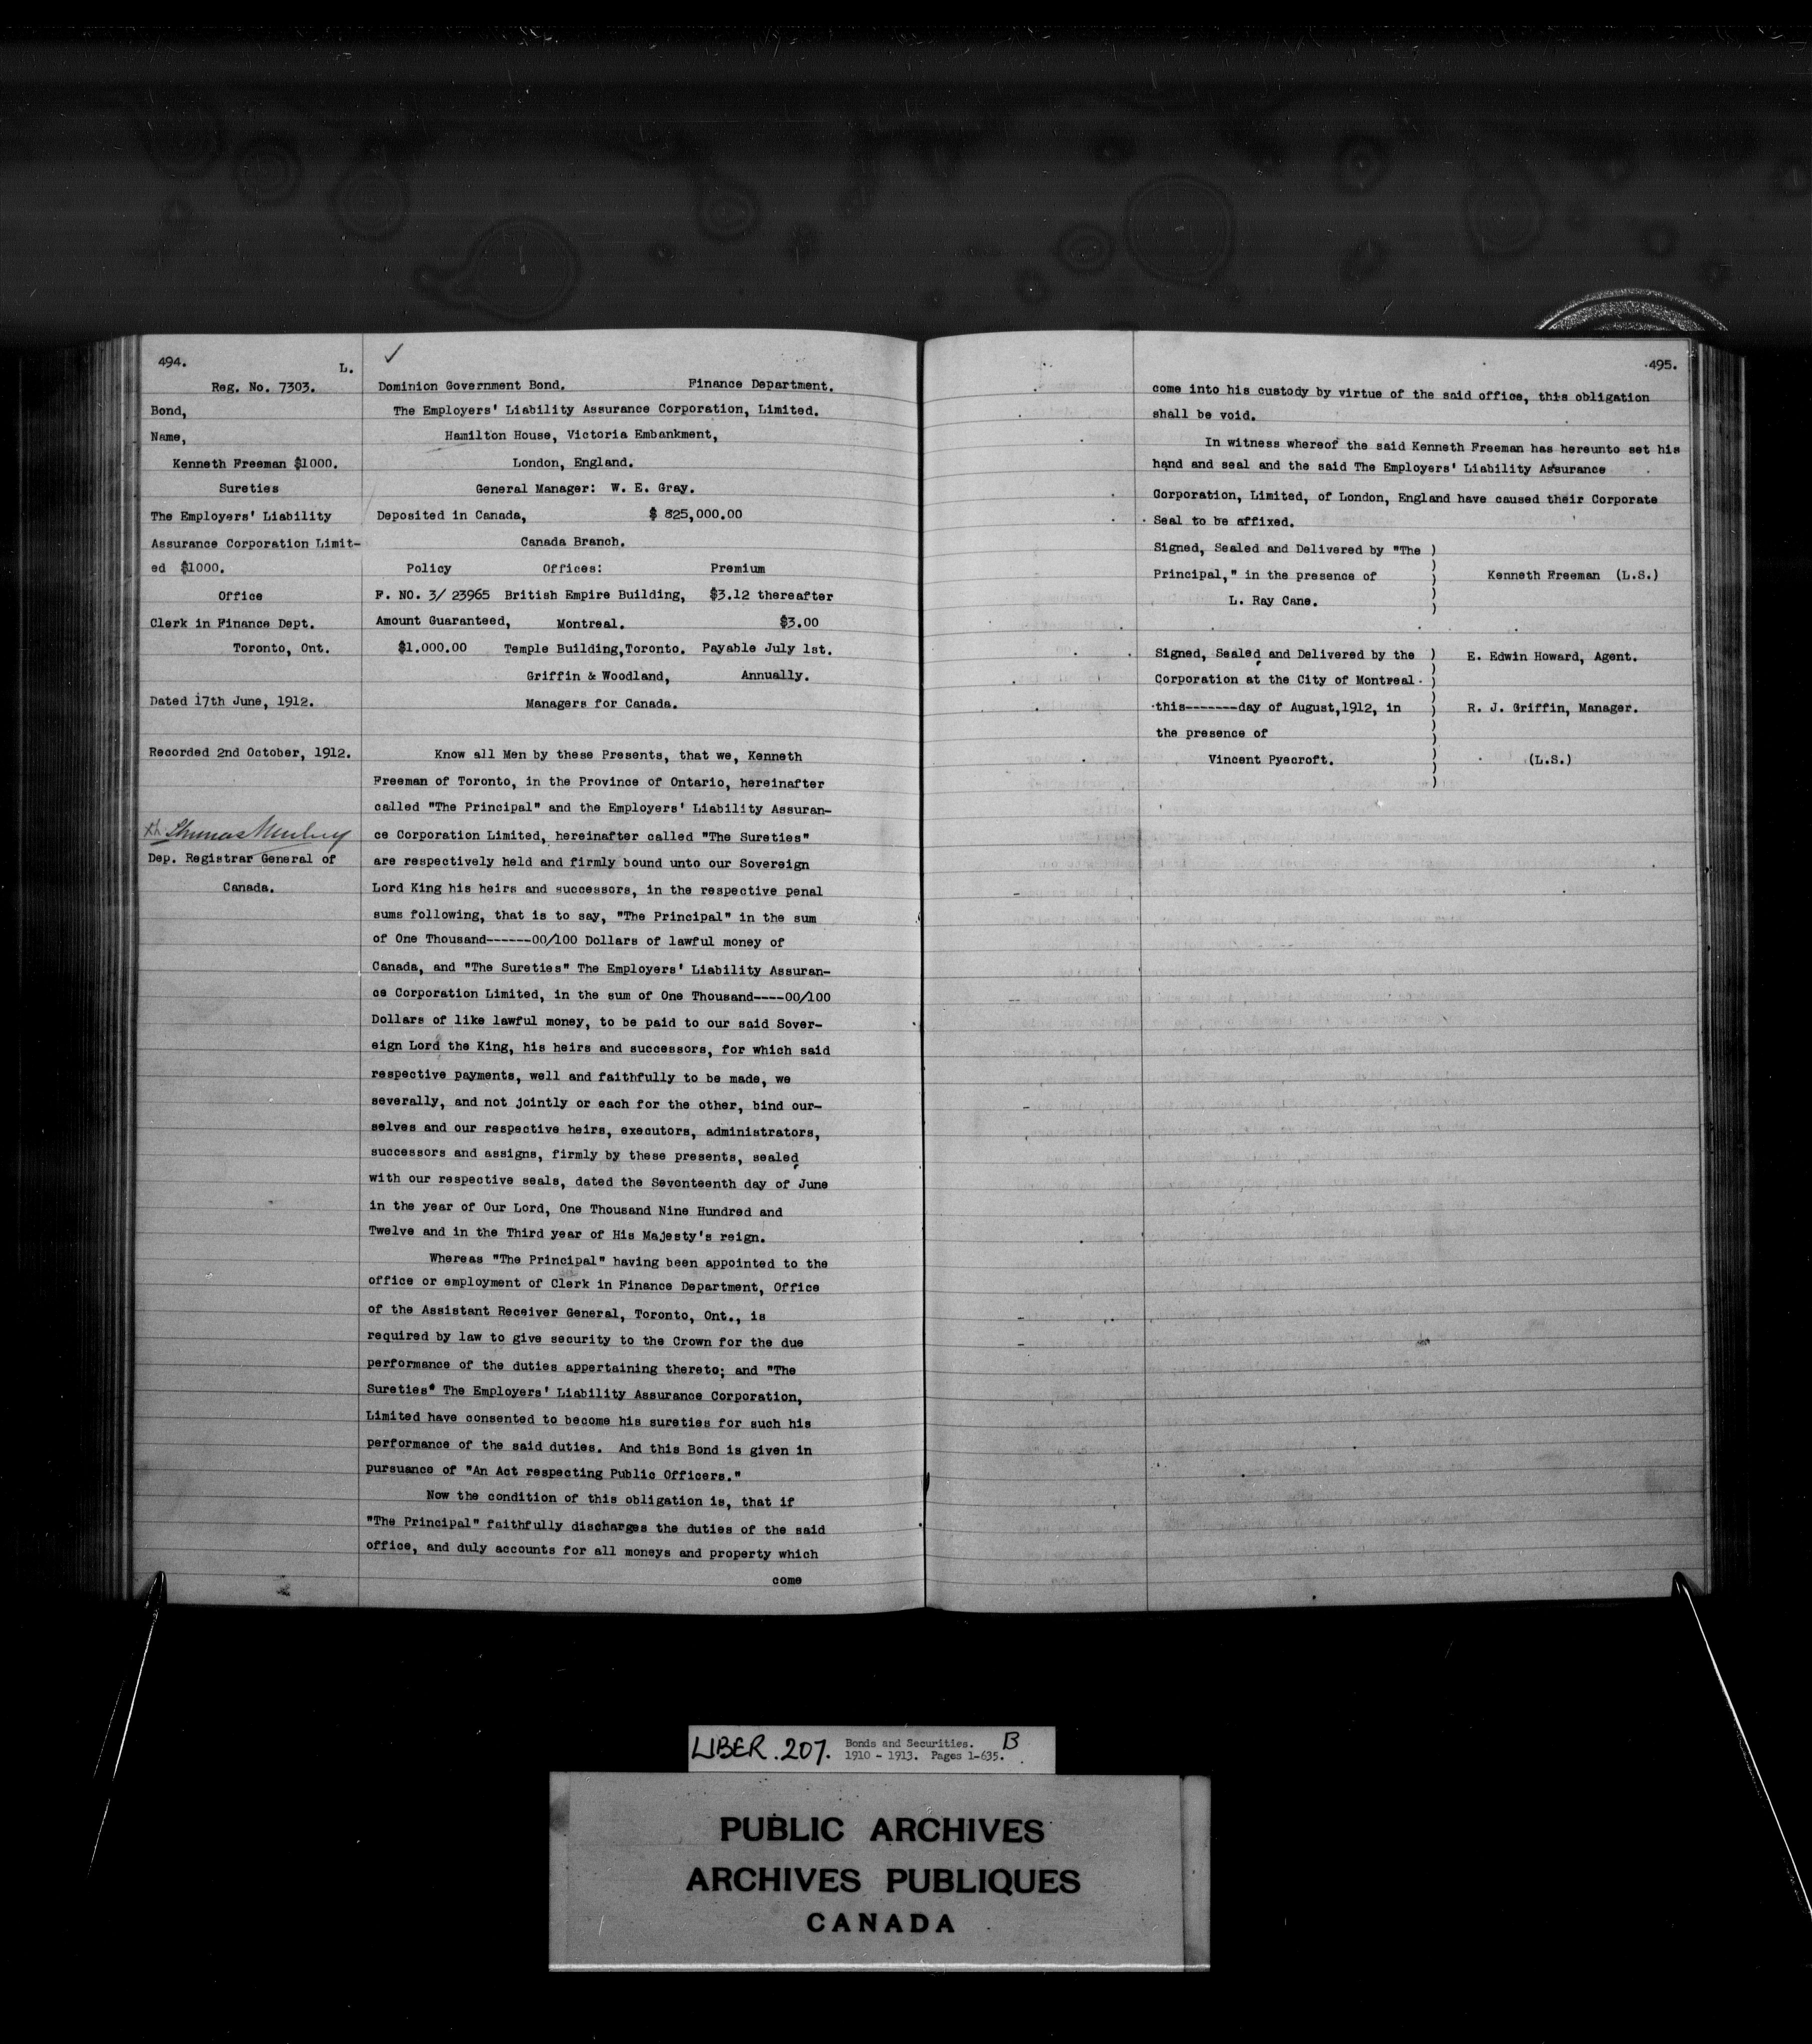 494.
L.
Reg. No. 7303.
Bond,
Name,
Kenneth Freeman $1000.
Sureties
The Employers' Liability
Assurance Corporation Limit-
ed $1000.
Office
Clerk in Finance Dept.
Toronto, Ont.
Dated 17th June, 1912.
Recorded 2nd October, 1912.
Thomas
Dep. Registrar General of
Canada.
✓
Dominion Government Bond. Finance Department.
The Employers' Liability Assurance Corporation, Limited.
Hamilton House, Victoria Embankment,
London, England.
General Manager: W. E. Gray.
Deposited in Canada, $ 825,000.00
Canada Branch.
Policy Offices: Premium
F. NO. 3/ 23965 British Empire Building, $3.12 thereafter
Amount Guaranteed, Montreal. $3.00
$1.000.00 Temple Building,Toronto. Payable July 1st.
Griffin & Woodland, Annually.
Managers for Canada.
Know all Men by these Presents, that we, Kenneth
Freeman of Toronto, in the Province of Ontario, hereinafter
called "The Principal" and the Employers' Liability Assuran-
ce Corporation Limited, hereinafter called "The Sureties"
are respectively held and firmly bound unto our Sovereign
Lord King his heirs and successors, in the respective penal
sums following, that is to say, "The Principal" in the sum
of One Thousand------00/100 Dollars of lawful money of
Canada, and "The Sureties" The Employers' Liability Assuran-
ce Corporation Limited, in the sum of One Thousand----00/100
Dollars of like lawful money, to be paid to our said Sover-
eign Lord the King, his heirs and successors, for which said
respective payments, well and faithfully to be made, we
severally, and not jointly or each for the other, bind our-
selves and our respective heirs, executors, administrators,
successors and assigns, firmly by these presents, sealed
with our respective seals, dated the Seventeenth day of June
in the year of Our Lord, One Thousand Nine Hundred and
Twelve and in the Third year of His Majesty's reign.
Whereas "The Principal" having been appointed to the
office or employment of Clerk in Finance Department, Office
of the Assistant Receiver General, Toronto, Ont., is
required by law to give security to the Crown for the due
performance of the duties appertaining thereto; and "The
Sureties" The Employers' Liability Assurance Corporation,
Limited have consented to become his sureties for such his
performance of the said duties. And this Bond is given in
pursuance of "An Act respecting Public Officers."
Now the condition of this obligation is, that if
"The Principal" faithfully discharges the duties of the said
office, and duly accounts for all moneys and property which
come
495.
come into his custody by virtue of the said office, this obligation
shall be void.
In witness whereof the said Kenneth Freeman has hereunto set his
hand and seal and the said The Employers' Liability Assurance
Corporation, Limited, of London, England have caused their Corporate
Seal to be affixed.
Signed, Sealed and Delivered by "The )
Principal," in the presence of ) Kenneth Freeman (L.S.)
L. Ray Cane. )
Signed, Sealed and Delivered by the ) E. Edwin Howard, Agent.
Corporation at the City of Montreal )
this-------day of August,1912, in ) R. J. Griffin, Manager.
the presence of )
Vincent Pyecroft. ) (L.S.)
LIBER. 207. Bonds and Securities. B
1910 - 1913. Pages 1-635.
PUBLIC ARCHIVES
ARCHIVES PUBLIQUES
CANADA